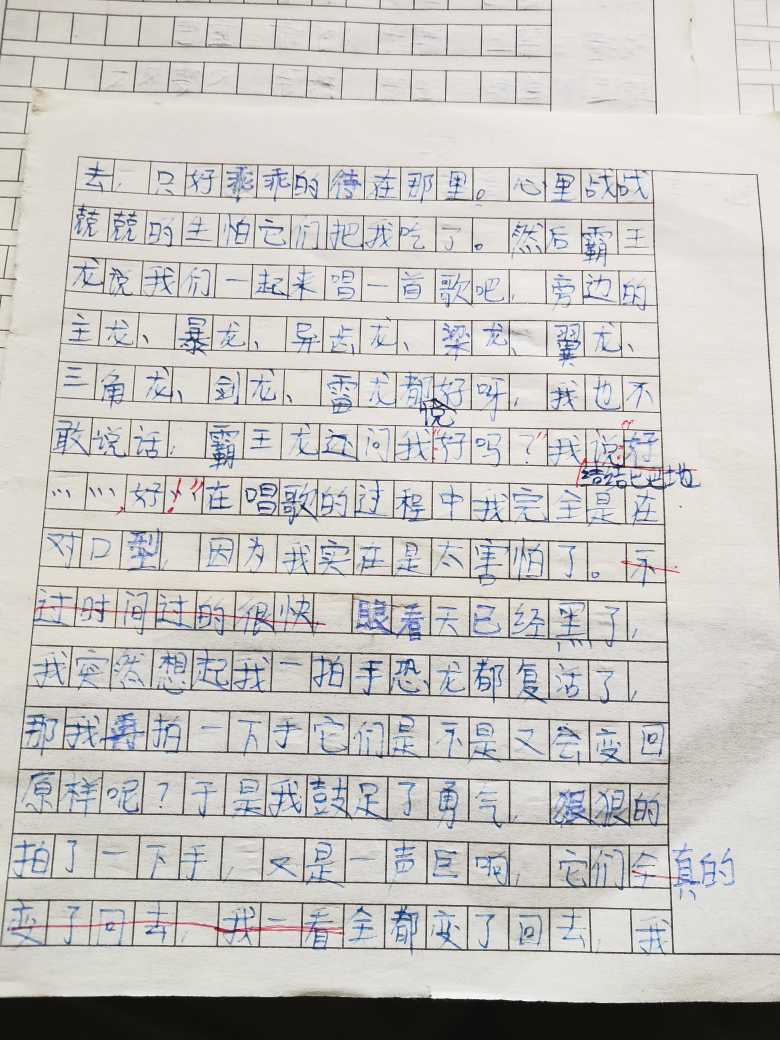 去，只好乖乖的待在那里。心里战战
兢兢的生怕它们把我吃了。然后霸王
龙说我们一起来唱一首歌吧，旁边的
主龙、暴龙、异齿龙、梁龙、翼龙、
三角龙、剑龙、雷龙都好呀，我也不
说
敢说话，霸王龙还问我“好吗？”我说“好
结结巴巴地
……好……”在唱歌的过程中我完全是在
对口型，因为我实在是太害怕了。不
过时间过的很快 眼看天已经黑了，
我突然想起我一拍手恐龙都复活了，
那我再拍一下手它们是不是又会变回
原样呢？于是我鼓足了勇气，狠狠的
拍了一下手，又是一声巨响，它们全真的
变了回去，我一看全都变了回去，我